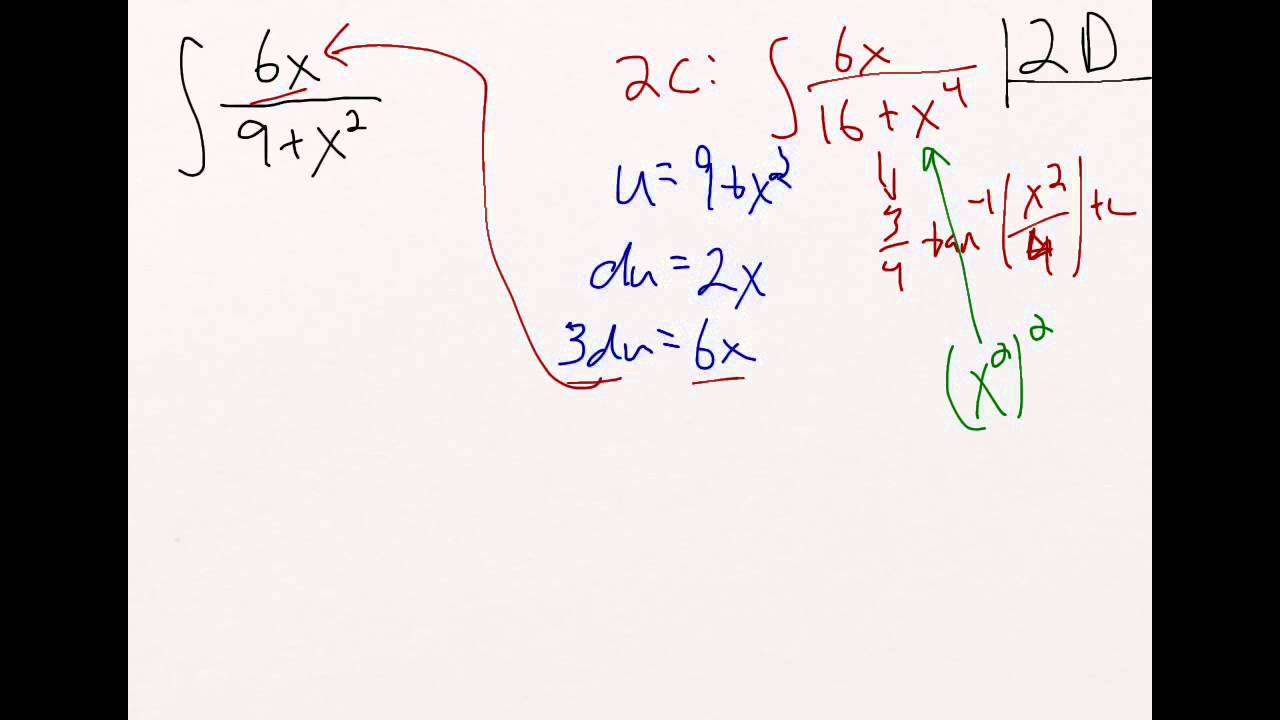 ∫ 6x / (9 + x²)
2C: ∫ 6x / (16 + x⁴)
2D
u = 9 + x²
du = 2x
3du = 6x
3/4 tan⁻¹ (x²/4) + c
(x²)²